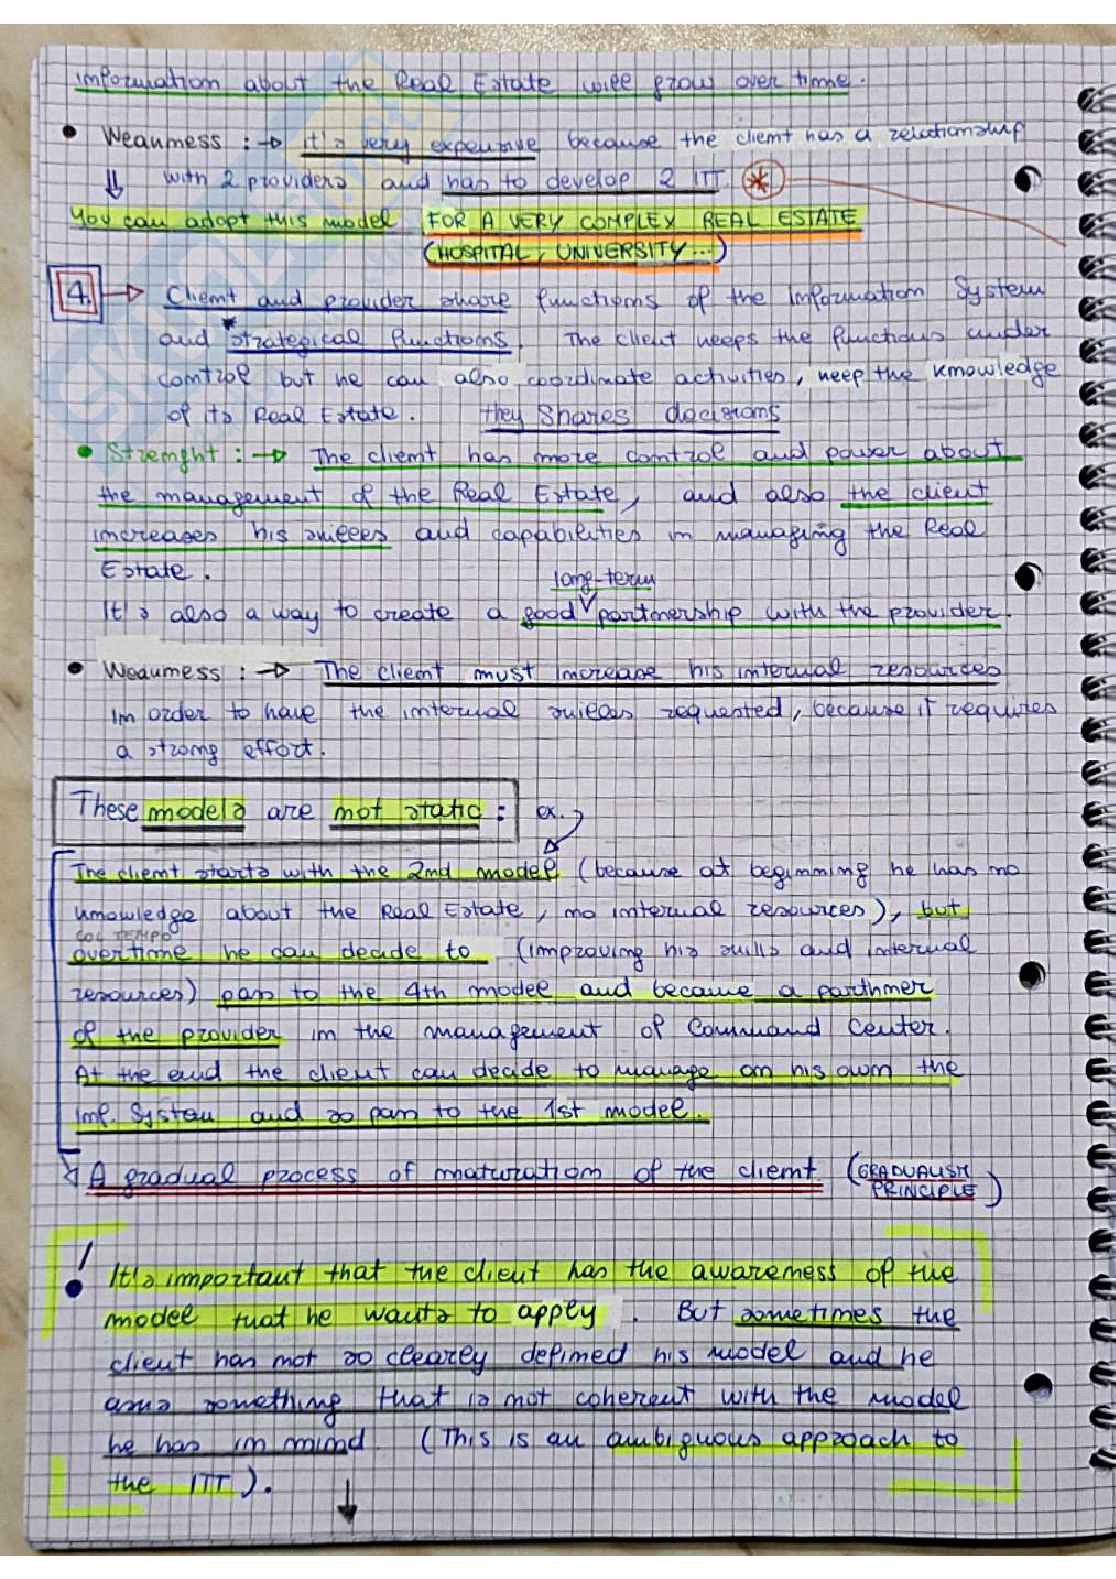 information about the Real Estate will grow over time.
• Weakness : → it's very expensive because the client has a relationship
with 2 providers and has to develop 2 ITT *
You can adopt this model FOR A VERY COMPLEX REAL ESTATE
(HOSPITAL, UNIVERSITY...)
4. → Client and provider share functions of the Information System
and strategical functions. The client keeps the functions under
control but he can also coordinate activities, keep the knowledge
of its Real Estate. They shares decisions
• Strenght : → The client has more control and power about
the management of the Real Estate, and also the client
increases his skills and capabilities in managing the Real
Estate.
long-term
It's also a way to create a good partnership with the provider.
• Weakness : → The client must increase his internal resources
in order to have the internal skills requested, because it requires
a strong effort.
These models are not static : ex.
The client starts with the 2nd model (because at beginning he has no
knowledge about the Real Estate, no internal resources), but
COL TEMPO
overtime he can decide to (improving his skills and internal
resources) pass to the 4th model and became a parthner
of the provider in the management of Command Center.
At the end the client can decide to manage on his own the
inf. System and so pass to the 1st model.
A gradual process of maturation of the client (GRADUALISM
PRINCIPLE)
! It's important that the client has the awareness of the
model that he wants to apply. But sometimes the
client has not so clearly defined his model and he
asks something that is not coherent with the model
he has in mind. (This is an ambiguous approach to
the ITT).